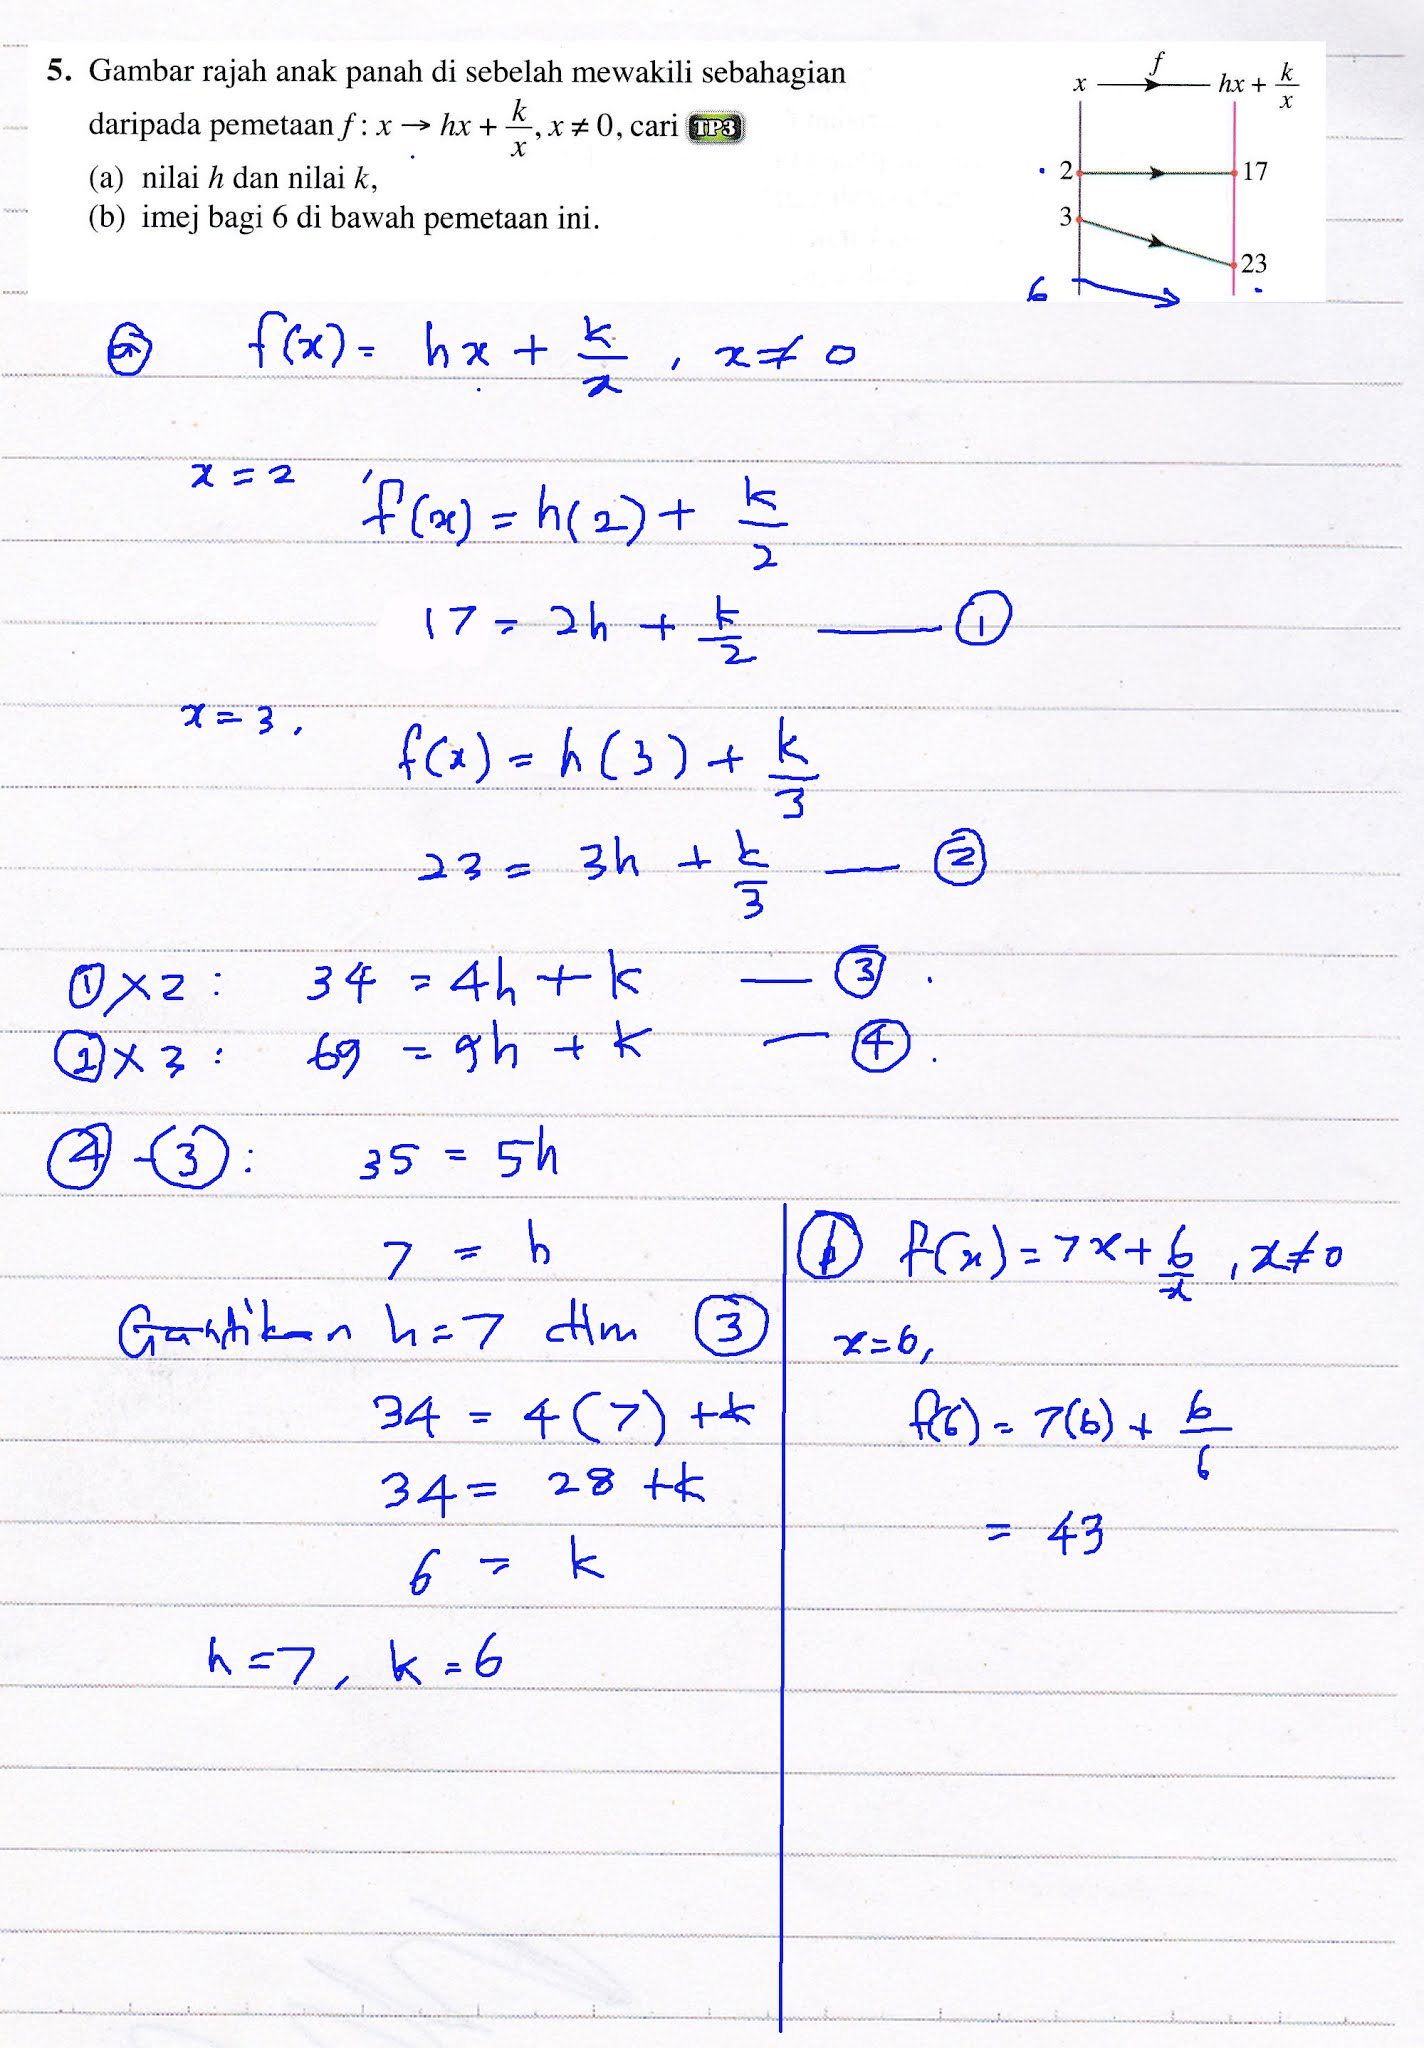 5. Gambar rajah anak panah di sebelah mewakili sebahagian
daripada pemetaan f : x → hx + k/x, x ≠ 0, cari TP3
(a) nilai h dan nilai k,
(b) imej bagi 6 di bawah pemetaan ini.
x f hx + k/x
2 17
3 23
6
(a) f(x) = hx + k/x , x ≠ 0
x = 2 f(x) = h(2) + k/2
17 = 2h + k/2 —— ①
x = 3, f(x) = h(3) + k/3
23 = 3h + k/3 — ②
① × 2 : 34 = 4h + k — ③
② × 3 : 69 = 9h + k — ④
④ - ③ : 35 = 5h
7 = h
Gantikan h = 7 dlm ③
34 = 4(7) + k
34 = 28 + k
6 = k
h = 7, k = 6
(b) f(x) = 7x + 6/x , x ≠ 0
x = 6,
f(6) = 7(6) + 6/6
= 43